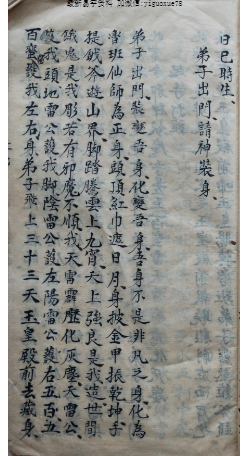 日已時生
弟子出門、請神裝身
弟子出門裝變吾身、化變吾身、吾身不是非凡之身、化為
魯班仙師為正身、頭頂紅巾遮日月、身披金甲振乾坤、手
提鉞斧遊山界、脚踏騰雲上九霄、天上強良是我造、世間
餓鬼是我形、若有邪魔不順我、天雷霹靂化灰塵、天雷公
護我頭、地雷公護我脚、陰雷公護左、陽雷公護右、五百五
百蠻雷護我左右、身弟子飛上三十三天玉皇殿前去藏身、